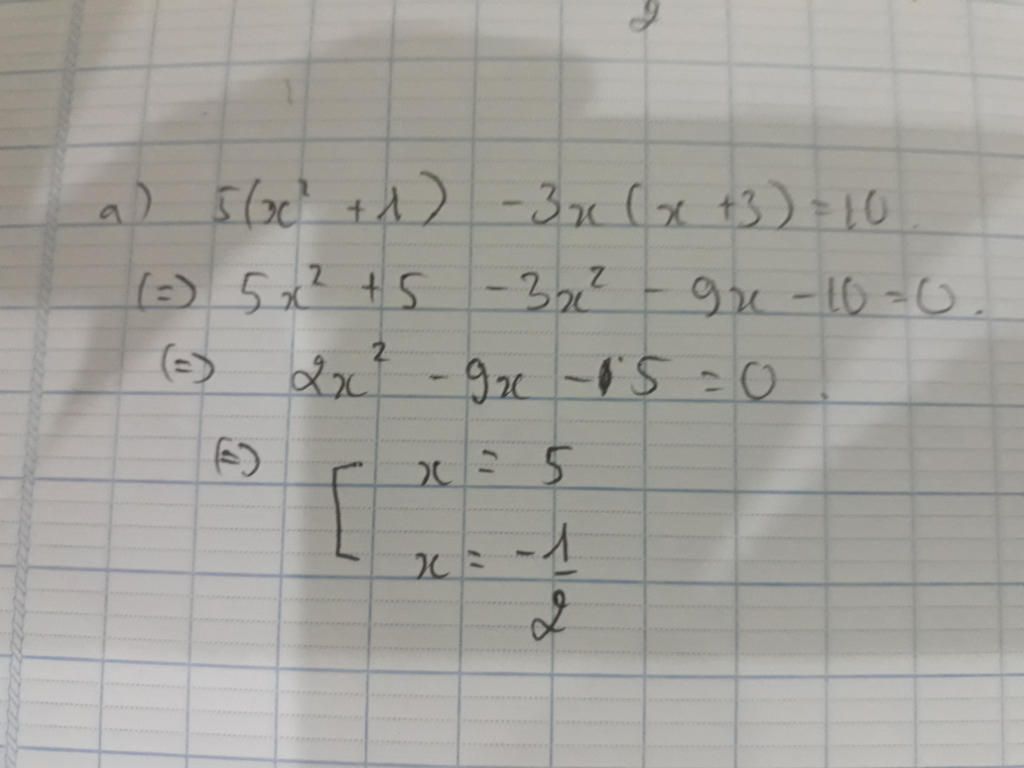 2
a) 5(x² + 1) - 3x(x + 3) = 10.
(=) 5x² + 5 - 3x² - 9x - 10 = 0.
(=) 2x² - 9x - 5 = 0.
(=) [ x = 5
x = -1/2